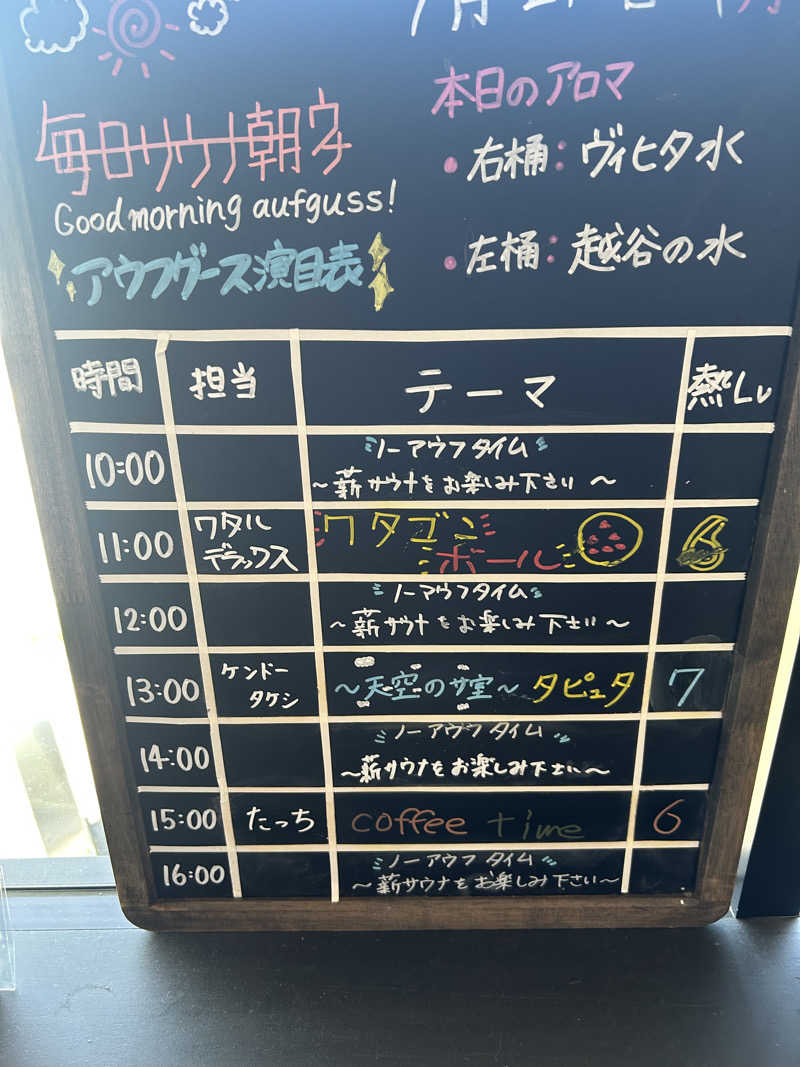 毎日サウナ朝ウ
Good morning aufguss!
アウフグース演目表
本日のアロマ
• 右桶：ヴィヒタ水
• 左桶：越谷の水
時間 担当 テーマ 熱Lv
10:00 ノーアウフタイム
〜薪サウナをお楽しみ下さい〜
11:00 ワタルデラックス ワタゴンボール 6
12:00 ノーアウフタイム
〜薪サウナをお楽しみ下さい〜
13:00 ケンドータケシ 〜天空のサ室〜 タピュタ 7
14:00 ノーアウフタイム
〜薪サウナをお楽しみ下さい〜
15:00 たっち coffee time 6
16:00 ノーアウフタイム
〜薪サウナをお楽しみ下さい〜